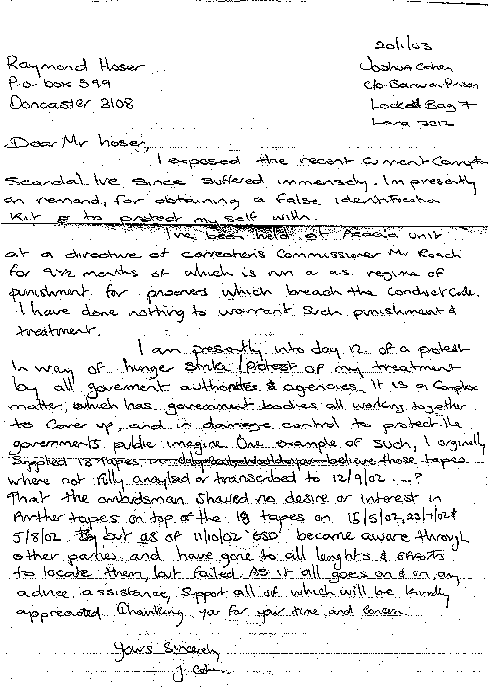 20/1/03
Raymond Hoser
Joshua Cohen
P.O. box 599
C/o Barwon Prison
Doncaster 3108
Locked Bag 7
Lara 3212
Dear Mr hoser,
I exposed the recent current
Scandal. Ive since suffered immensely. Im presently
on remand, for obtaining a false identification
Kit to protect my self with.
I've been held at Acacia unit
at a directive of correction's Commissioner Mr Roach
for 9½ months of which is run a as. regime of
punishment for prisoners which breach the Conduct Code.
I have done nothing to warrant such punishment &
treatment.
I am presently into day 12 of a protest
In way of hunger strike / protest of my treatment
by all goverment authorites & agencies. It is a Complex
matter, which has government bodies all working together
to cover up, and in damage control to protect the
governments public imagine. One example of such, I orginally
Supplied 18 tapes believe those tapes
where not fully anaylsed or transcribed to 12/9/02 ....?
That the ombudsman Shared no desire or interest in
further tapes on top of the 18 tapes on 15/5/02, 23/7/02 &
5/8/02 but as of 11/10/02 "ESD" became aware through
other parties and have gone to all lenghts & efforts
to locate them, but failed As it all goes on & on any
advice assistance, Support all of which will be kindly
appreciated Thanking you for your time and Concern
Yours Sincerely
J. Cohen